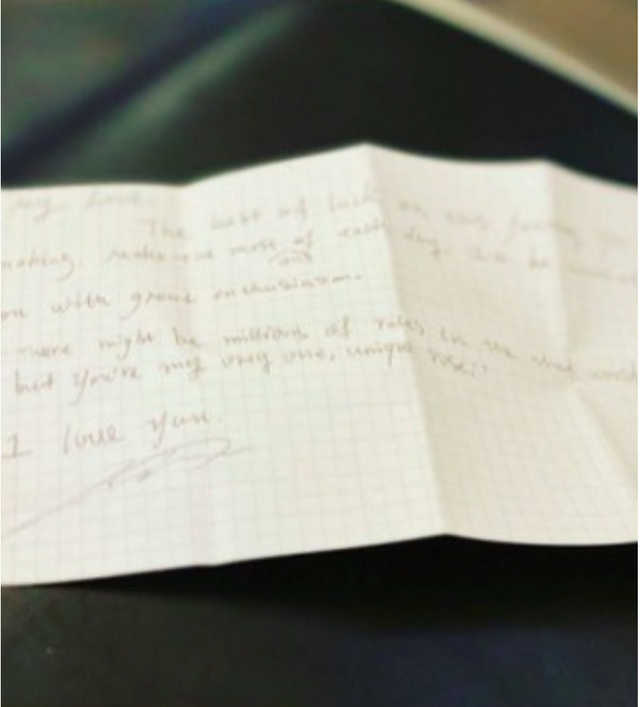 my love
The best of luck on this journey
making. make the most of each day.
and
on with great enthusiasm.
there might be millions of roses in the whole world
but you're my only one, unique rose."
I love you.